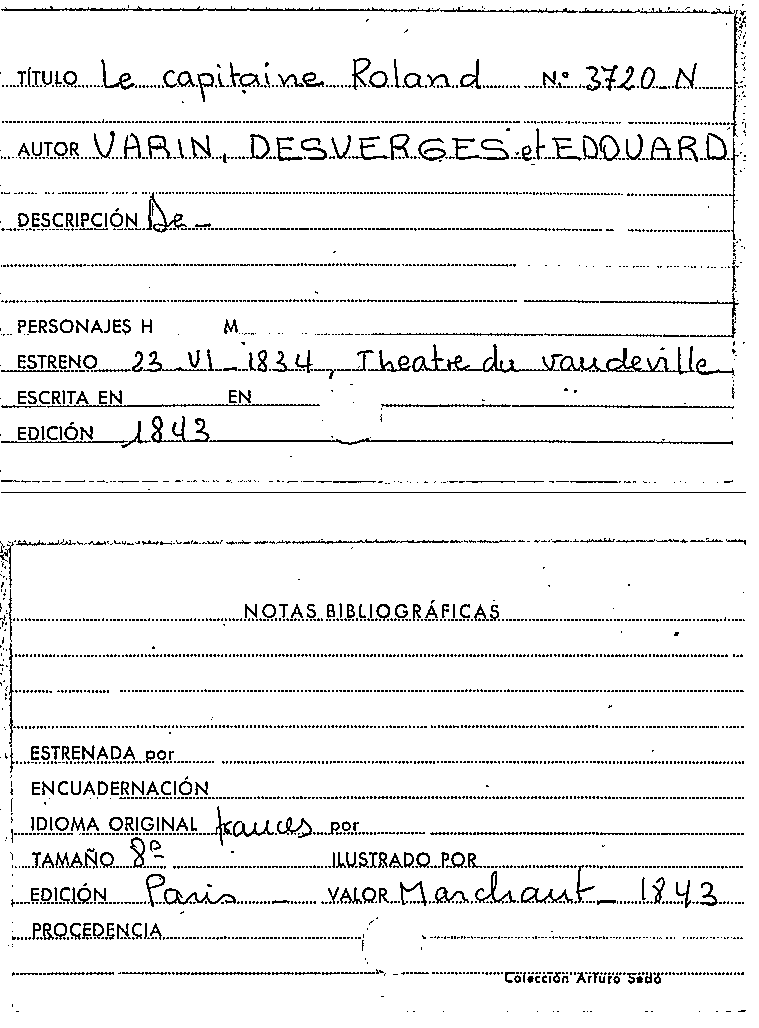 TÍTULO Le capitaine Roland N.º 3720 N
AUTOR VARIN, DESVERGES et EDOUARD
DESCRIPCIÓN De
PERSONAJES H M
ESTRENO 23 VI 1834, Theatre du vaudeville
ESCRITA EN EN
EDICIÓN 1843
NOTAS BIBLIOGRÁFICAS
ESTRENADA por
ENCUADERNACIÓN
IDIOMA ORIGINAL frances por
TAMAÑO 8º ILUSTRADO POR
EDICIÓN Paris VALOR Marchant - 1843
PROCEDENCIA
Colección Arturo Sedó